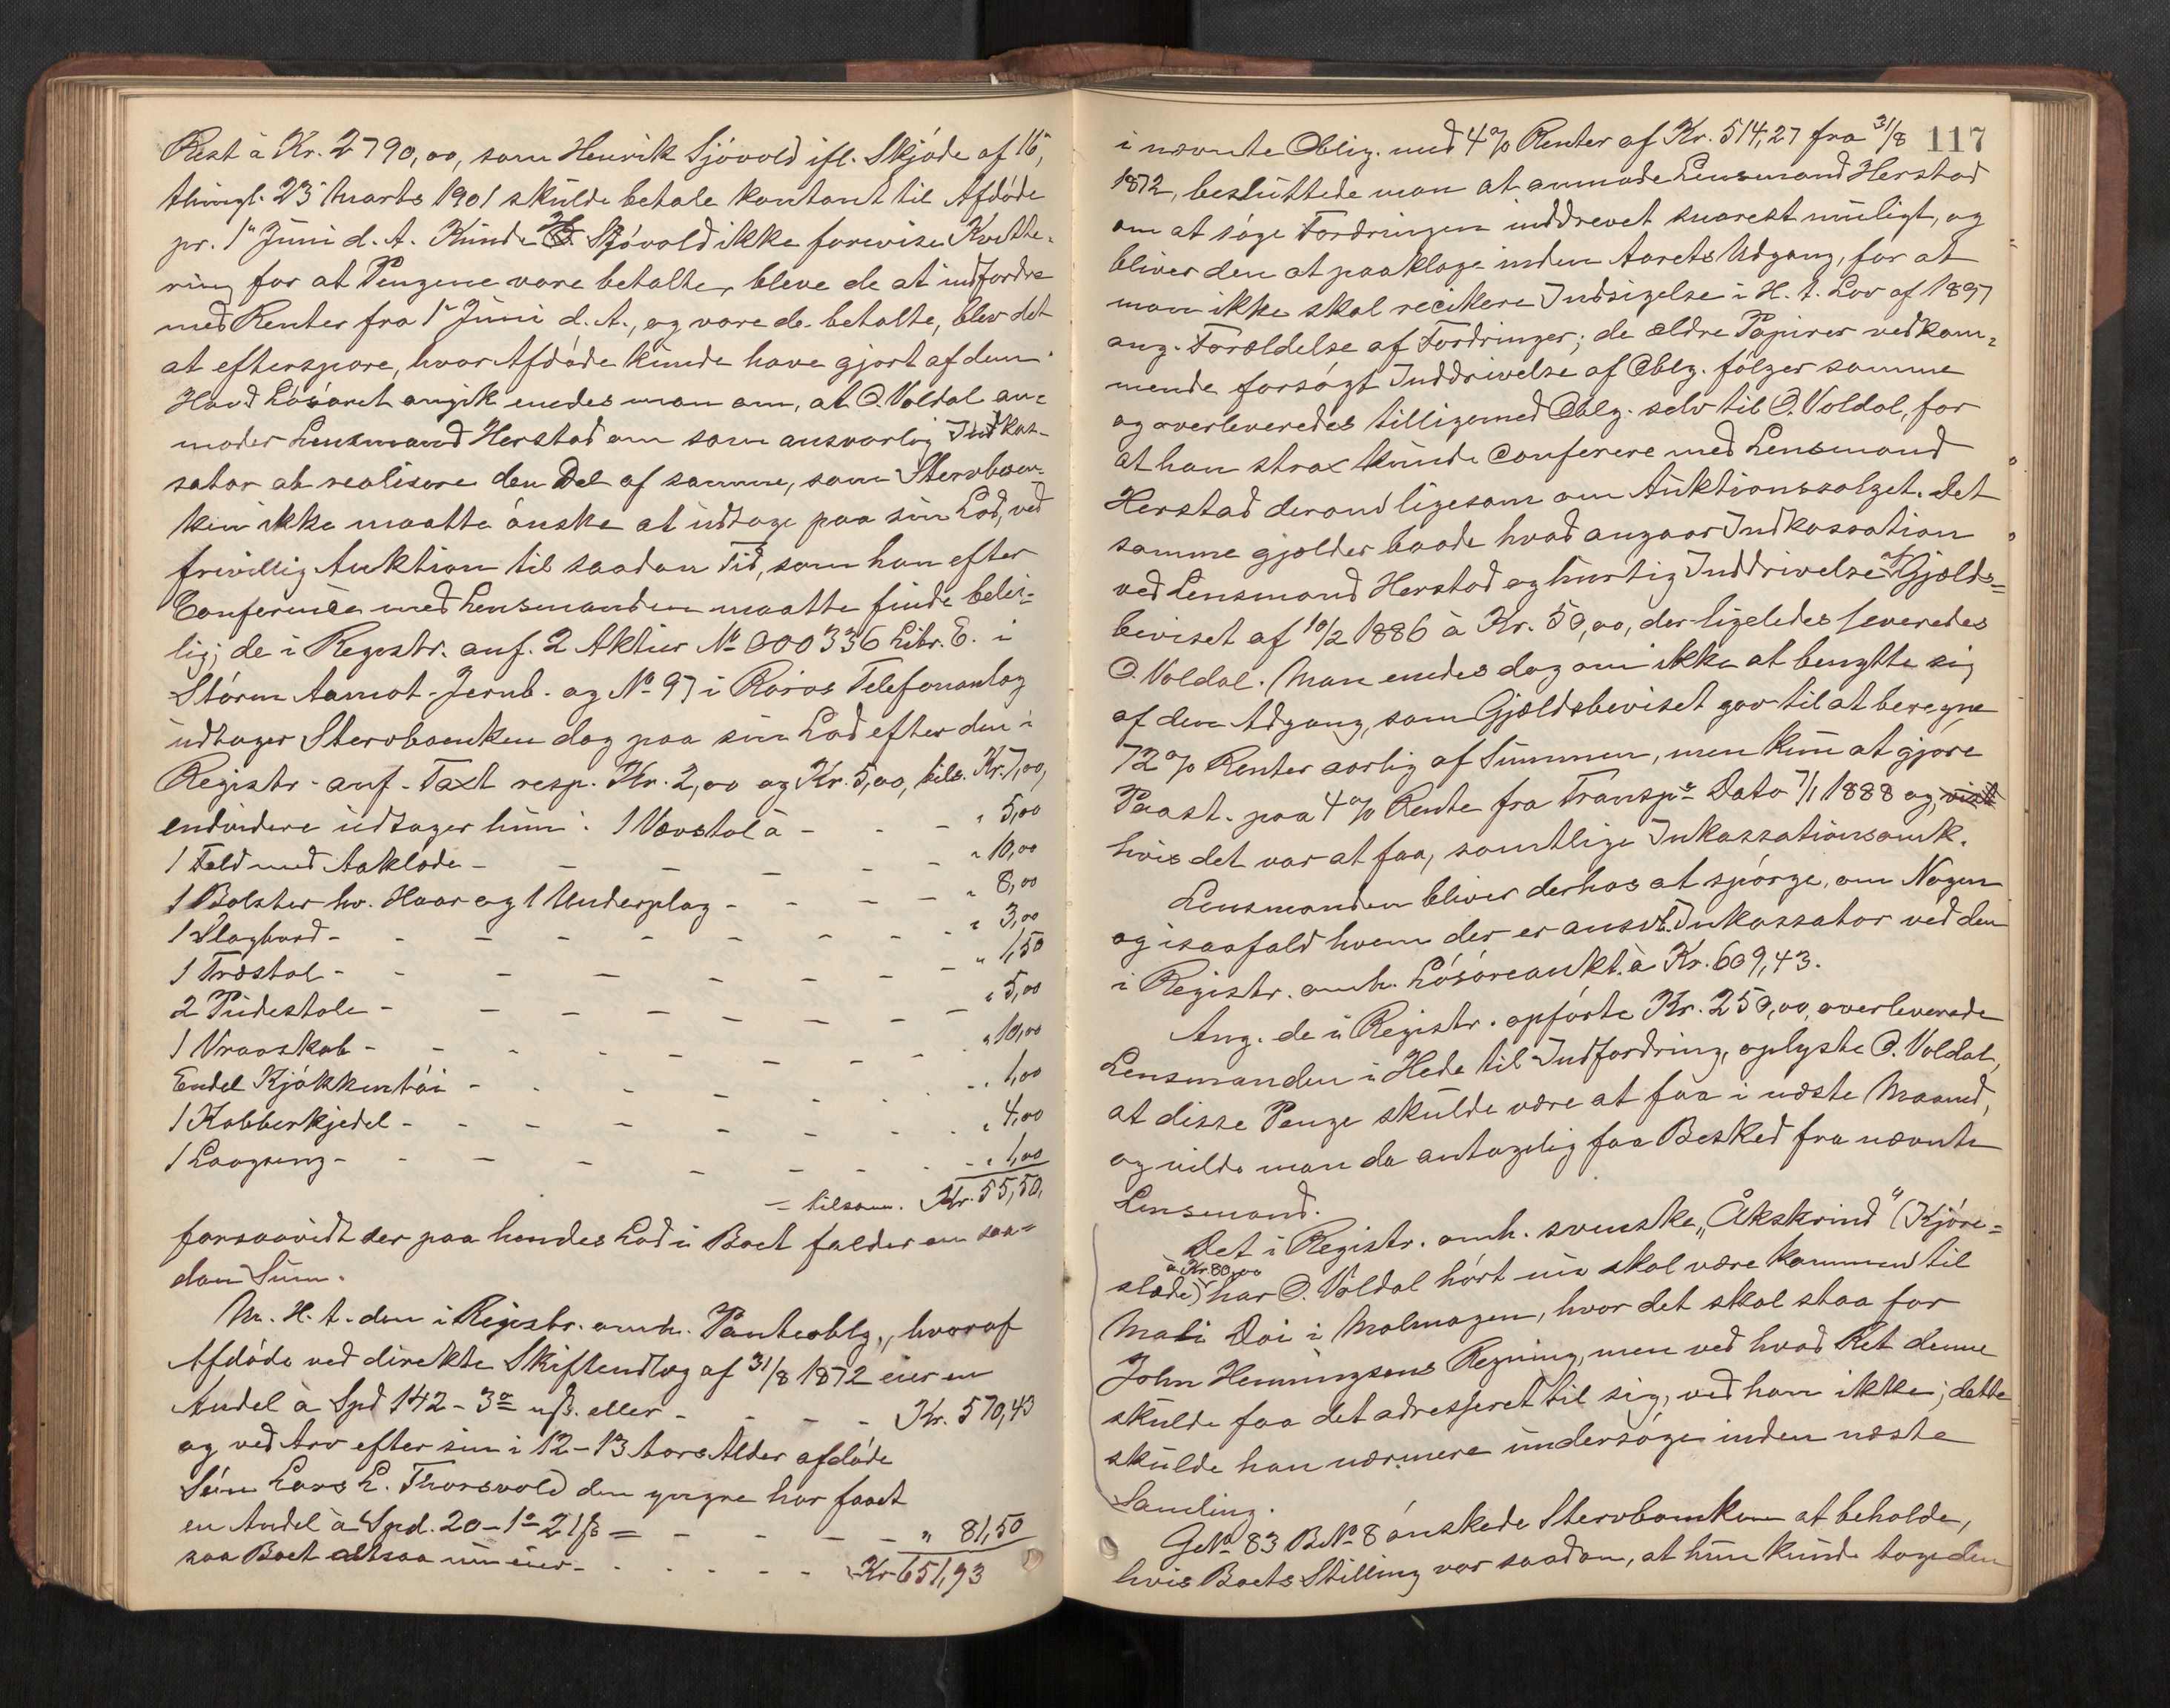 Rest à Kr. 2790,00, som Henrik Sjövold ifl. Skjöde af 16',
thingl. 23' Marts 1901 skulde betale kontant til Afdöde
pr. 1' Juni d. A. Kunde H. Sjövold ikke forevise Kvitte-
ring for at Pengene vare betalte, bleve de at indfordre
med Renter fra 1' Juni d. A., og vare de betalte, blev det
at efterspore, hvor Afdöde kunde have gjort af dem.
Hvad Lösöret angik enedes man om, at O. Voldal an-
moder Lensmand Herstad om som ansvarlig Indkas-
sator at realisere den Del af samme, som Stervboen-
ken ikke maatte önske at udtage paa sin Lod, ved
frivillig Auktion til saadan Tid, som han efter
Conference med Lensmanden maatte finde belei-
lig; de i Registr. anf. 2 Aktier № 000336 Litr. E. i
Stören Aamot-Jernb. og № 97 i Röros Telefonanlæg
udtager Stervboenken dog paa sin Lod efter den i
Registr. anf. Taxt resp. Kr. 2,00 og Kr. 5,00, tils. Kr. 7,00,
endvidere udtager hun: 1 Vævstol à - - - " 5,00
1 Feld med Aaklæde - - - - - - " 10,00
1 Bolster hv. Haar og 1 Underplag - - - - " 8,00
1 Slagbord - - - - - - - - " 3,00
1 Træstol - - - - - - - - " 1,50
2 Pudestole - - - - - - - " 5,00
1 Vraaskab - - - - - - - - " 10,00
Endel Kjökkentöi - - - - - - - " 1,00
1 Kobberkjedel - - - - - - - " 4,00
1 Laagseng - - - - - - - - " 1,00
= tilsam. Kr. 55,50,
forsaavidt der paa hendes Lod i Boet falder en saa-
dan Sum.
M. H. t. den i Registr. omh. Panteoblg., hvoraf
Afdöde ved direkte Skifteudlæg af 31/8 1872 eier en
Andel à Spd 142 - 3 - uß. eller - - - - Kr. 570,43
og ved Arv efter sin i 12-13 Aars Alder afdöde
Sön Lars L. Thorsvold den yngre har faaet
en Andel à Spd. 20 - 1 - 21ß = - - - - " 81,50
saa Boet altsaa nu eier - - - - - - Kr 651,93
117
i nævnte Oblig. med 4% Renter af Kr. 514,27 fra 31/8
1872, besluttede man at anmode Lensmand Herstad
om at söge Fordringen inddrevet snarest muligt, og
bliver den at paaklage inden Aarets Udgang, for at
man ikke skal recikere Indsigelse i H. t. Lov af 1897
ang. Forældelse af Fordringer; de ældre Papirer vedkom-
mende forsögt Inddrivelse af Oblg. fölger samme
og overleveredes tilligemed Oblg. selv til O. Voldal, for
at han strax kunde Conferere med Lensmand
Herstad derom ligesom om Auktionssalget. Det
samme gjælder baade hvad angaar Indkassation
ved Lensmand Herstad og hurtig Inddrivelse af Gjælds-
beviset af 10/2 1886 à Kr. 50,00, der ligeledes leveredes
O. Voldal. Man enedes dog om ikke at benytte sig
af den Adgang, som Gjældsbeviset gav til at beregne
72% Renter aarlig af Summen, men kun at gjöre
Paast. paa 4% Rente fra Transp. Dato 7/1 1888 og,
hvis det var at faa, samtlige Inkassationsomk.
Lensmanden bliver derhos at spörge, om Nogen
og isaafald hvem der er ansvl. Inkassator ved den
i Registr. omh. Lösöreaukt. à Kr. 609,43.
Ang. de i Registr. opförte Kr. 250,00, overleverede
Lensmanden i Hede til Indfordring, oplyste O. Voldal,
at disse Penge skulde være at faa i næste Maaned,
og vilde man da antagelig faa Besked fra nævnte
Lensmand.
Det i Registr. omh. svenske „Åkskrind" (Kjöre-
slæde) à Kr 80,00 har O. Voldal hört nu skal være kommen til
Mali Doi i Malmagen, hvor det skal staa for
John Henningsens Regning, men ved hvad Ret denne
skulde faa det adresseret til sig, ved han ikke; dette
skulde han nærmere undersöge inden næste
Samling.
G.№ 83 B.№ 8 önskede Stervboenken at beholde,
hvis Boets Stilling var saadan, at hun kunde tage den